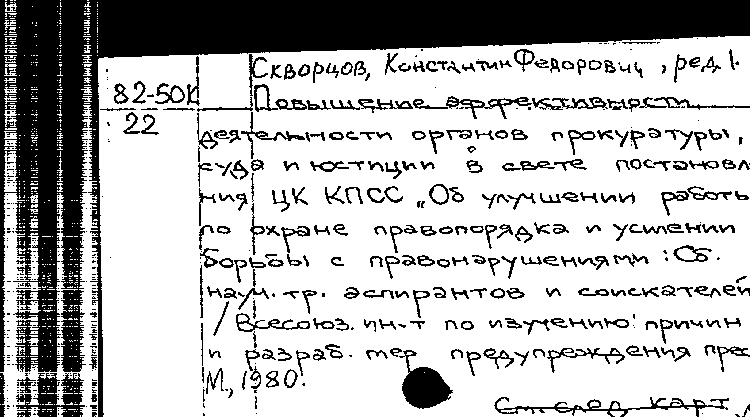 Скворцов, Константин Федорович, ред.
82-50К Повышение эффективности
22 деятельности органов прокуратуры,
суда и юстиции в свете постановл
ния ЦК КПСС „Об улучшении работы
по охране правопорядка и усилении
борьбы с правонарушениями: Сб.
науч. тр. аспирантов и соискателей
/ Всесоюз. ин-т по изучению причин
и разраб. мер предупреждения прес
М., 1980.
См. след. карт.